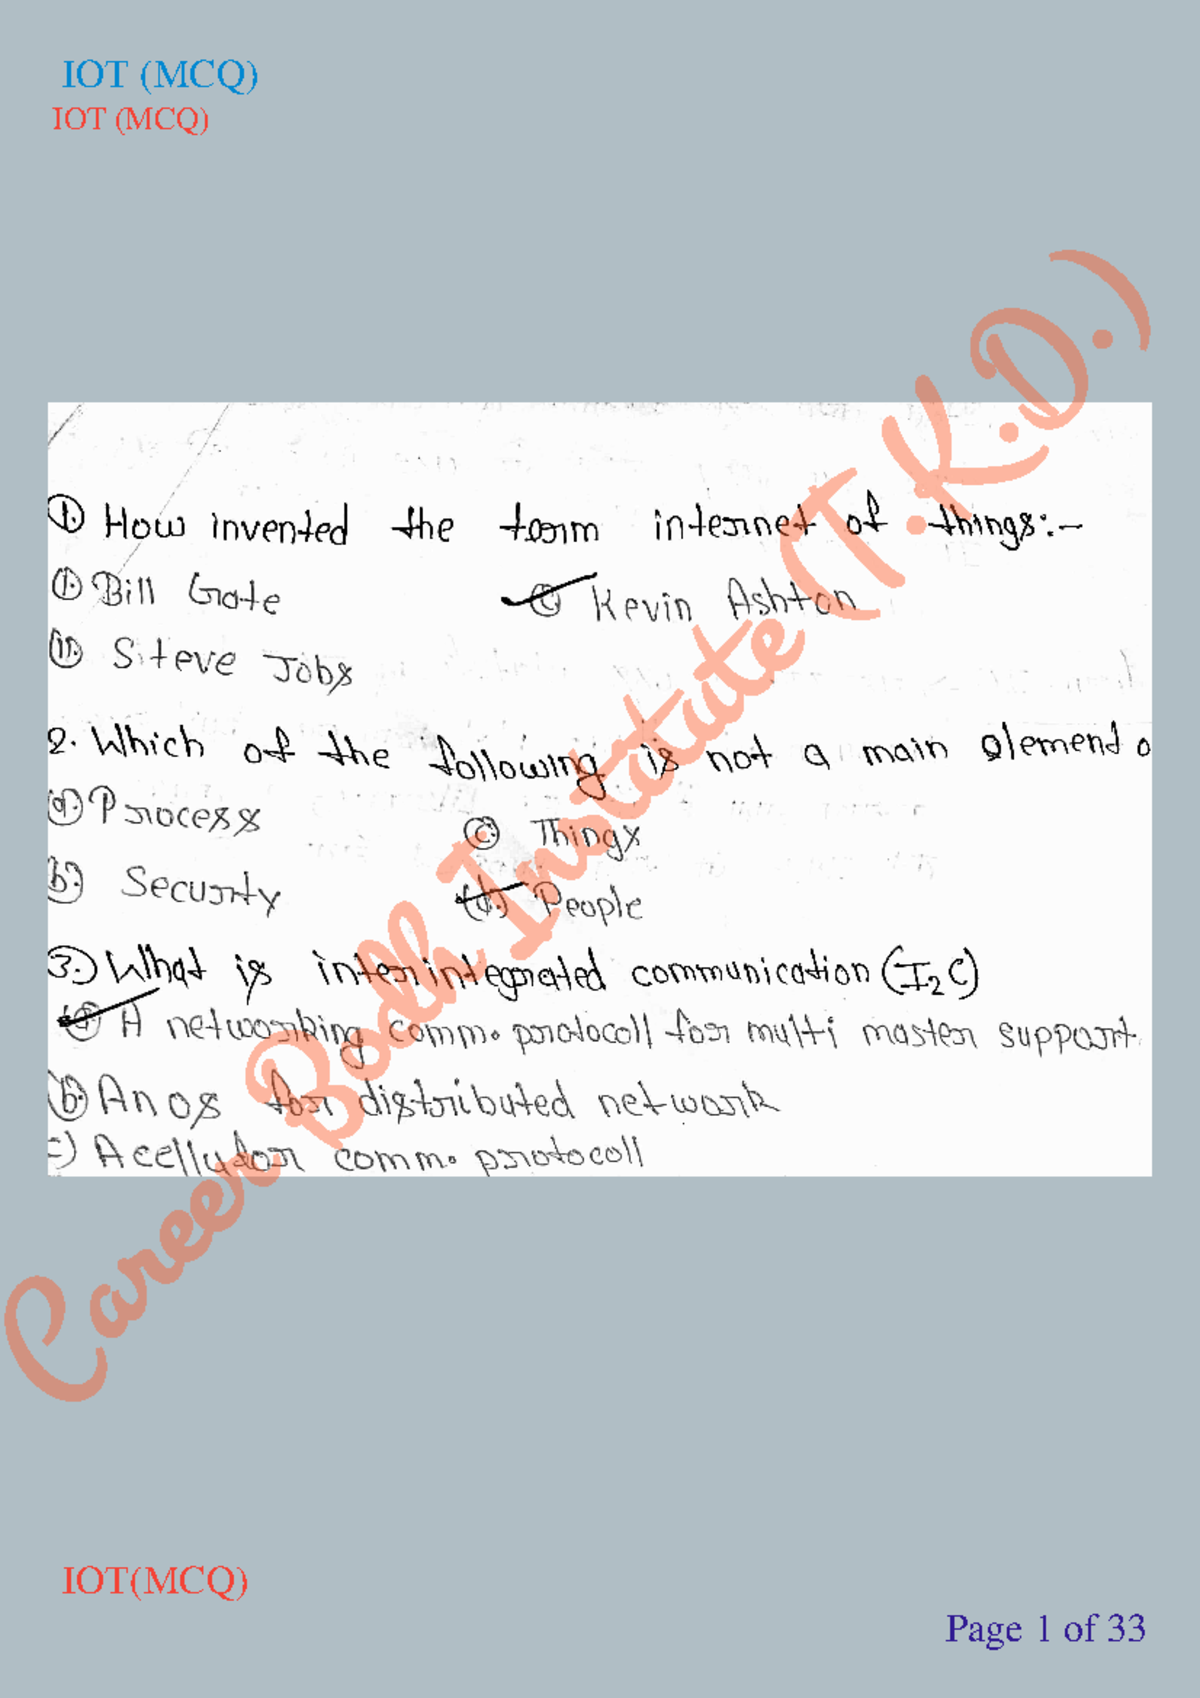 IOT (MCQ)
IOT (MCQ)
① How invented the term internet of things:-
① Bill Gate
© Kevin Ashton
⑪ Steve Jobs
2. Which of the following is not a main element o
a) Process
© Things
b) Security
(d.) People
3.) What is interintegrated communication (I2C)
(a) A networking comm. protocoll for multi master support.
b) An os for distributed network
c) A celludor comm. protocoll
Career Bodh Institute (T.K.D.)
IOT(MCQ)
Page 1 of 33